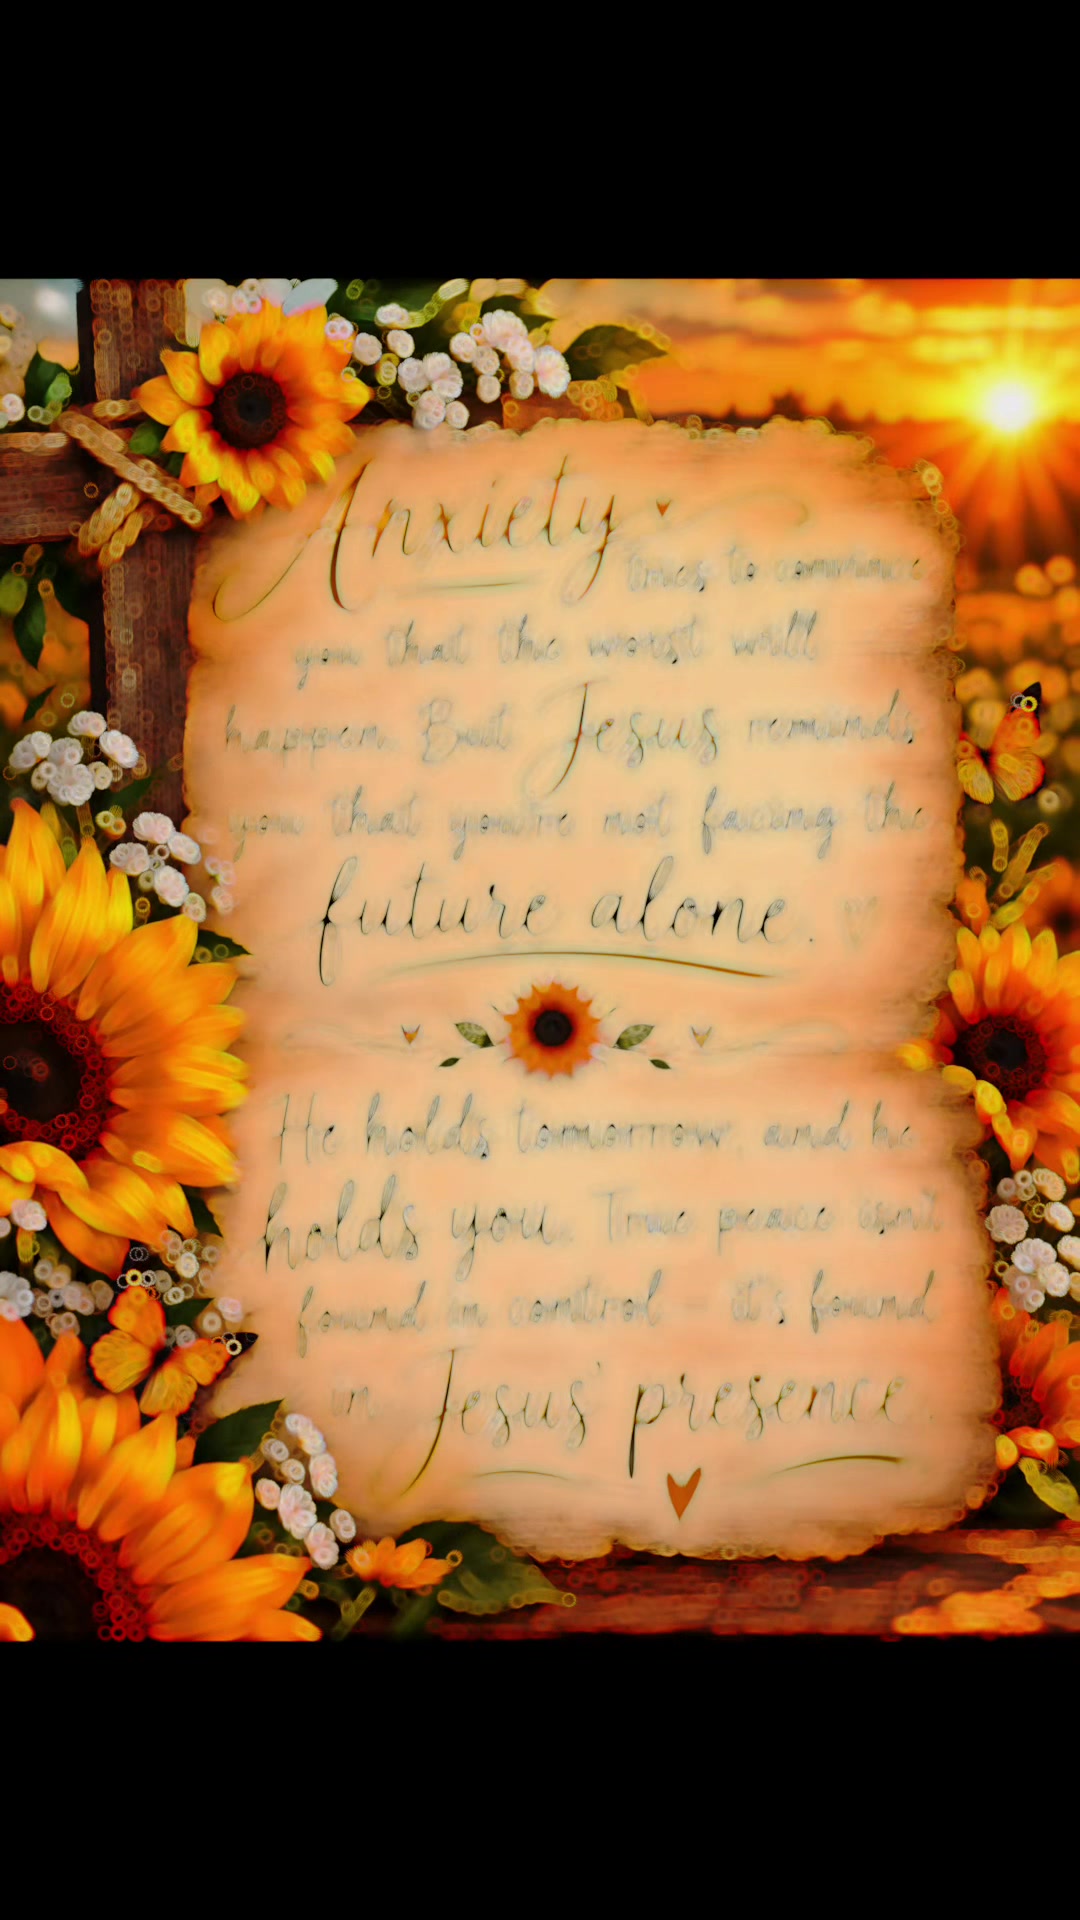 Anxiety
tries to convince
you that the worst will
happen. But Jesus reminds
you that you're not facing the
future alone.
He holds tomorrow, and he
holds you. True peace isn't
found in control – it's found
in Jesus' presence.